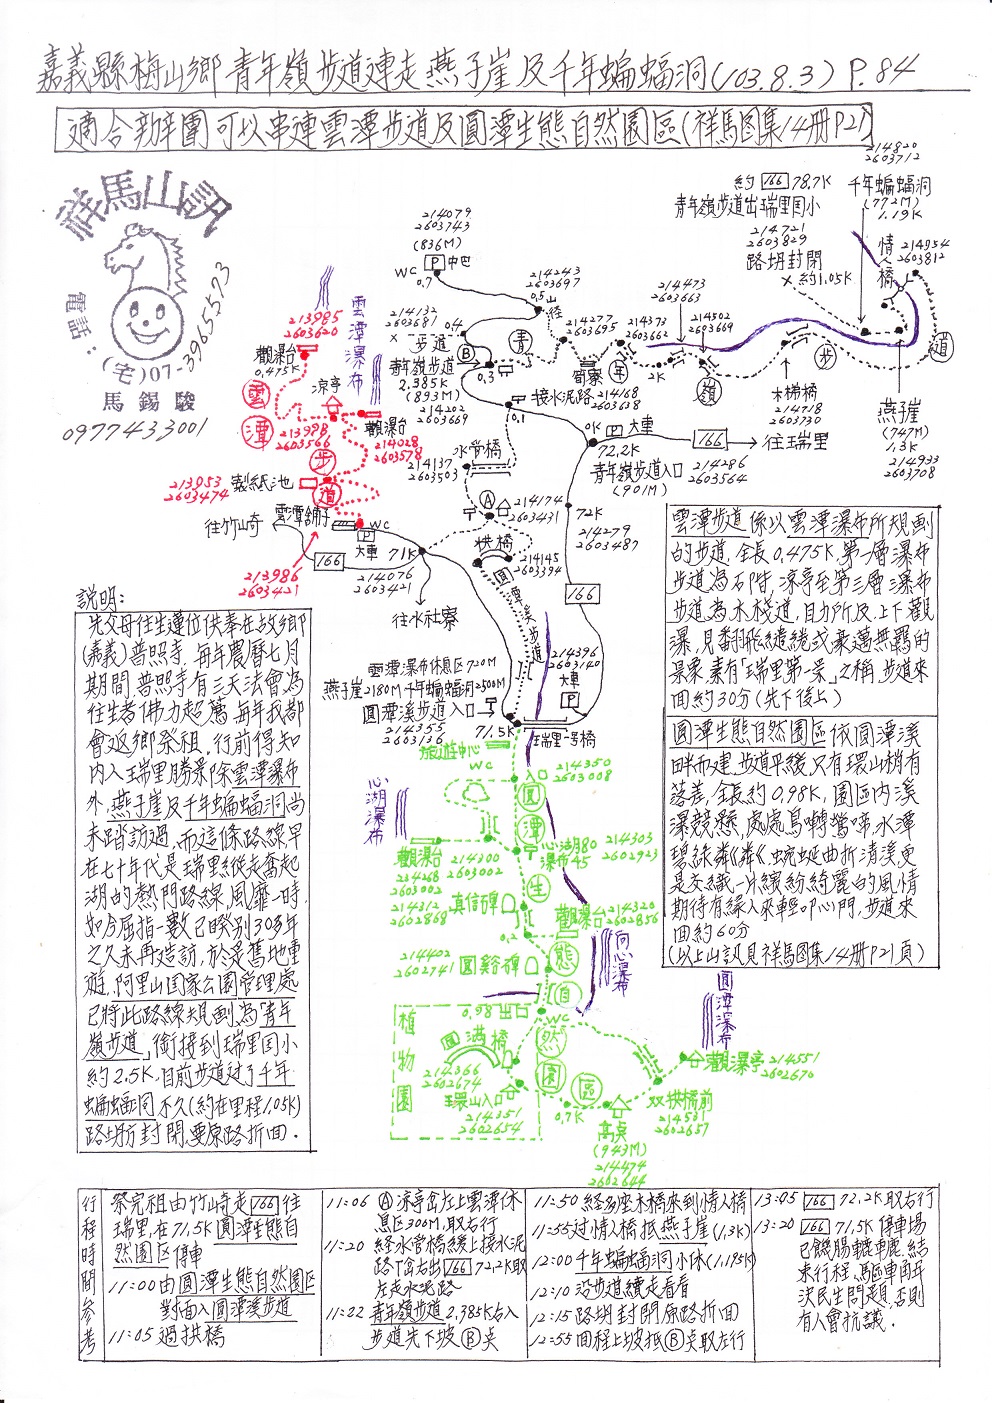 嘉義縣梅山鄉青年嶺步道連走燕子崖及千年蝙蝠洞(103.8.3) P.84
適合辦團可以串連雲潭步道及圓潭生態自然園區(祥馬图集14册P21)
祥馬山訊
電話:(宅)07-3965573
馬錫駿
0977433001
214079
2603743
(836M)
WC P 中巴
0.7
214243
2603697
0.5 山徑
214132
2603681
步道
0.4
青年嶺步道
2.385K
(893M)
214202
2603669
B
0.3
214277
2603695
214373
2603662
214473
2603663
214502
2603669
2K
筍寮
青年嶺步道
約 166 78.7K
青年嶺步道出瑞里国小
214721
2603829
路坍封閉
×約1.05K
214820
2603712
千年蝙蝠洞
(772M)
1.19K
情人橋
214954
2603812
木梯橋
214718
2603730
燕子崖
(747M)
1.3K
214933
2603708
接水泥路
214168
2603638
0.1
水管橋
214137
2603503
0K P 大車
72.2K
166 往瑞里
青年嶺步道入口
(901M)
214286
2603564
A
214174
2603431
拱橋
214145
2603394
72K
214279
2603487
166
圓潭溪步道
214396
2603140
大車
P
213985
2603620
觀瀑台
0.475K
雲潭瀑布
涼亭
213998
2603566
觀瀑台
214028
2603578
雲潭步道
213953
2603474
製紙池
雲潭舖子
WC
P
大車
往竹山崎
166
213986
2603421
71K
214076
2603421
往水社寮
雲潭瀑布休息区720M
燕子崖2180M千年蝙蝠洞2500M
圓潭溪步道入口
214355
2603136
71.5K
瑞里一号橋
旅遊中心
WC
入口
214350
2603008
心湖瀑布
觀瀑台
234268
2603002
214300
2603002
心湖80
瀑布45
214303
2602923
214312
2602868
真信碑
觀瀑台
214320
2602856
0.2
214402
2602741
圓谿碑
向心瀑布
圓潭生態自然園區
0.98出口
WC
植物園
圓滿橋
214366
2602674
環山入口
214351
2602654
0.7K
高奌
(943M)
214474
2602644
双拱橋前
214531
2602657
觀瀑亭
214551
2602670
圓潭瀑布
說明:
先父母往生蓮位供奉在故鄉
(嘉義)普照寺,每年農曆七月
期間,普照寺有三天法會,為
往生者佛力超薦,每年我都
會返鄉祭祖,行前得知
内入瑞里勝景除雲潭瀑布
外,燕子崖及千年蝙蝠洞尚
未踏訪過,而這條路線早
在七十年代是瑞里縱走奮起
湖的熱門路線,風靡一時,
如今屈指一數已睽別30多年
之久未再造訪,於是舊地重
遊,阿里山国家公園管理處
已將此路線規劃為「青年
嶺步道」銜接到瑞里国小
約2.5K,目前步道过了千年
蝙蝠洞不久(約在里程1.05K)
路坍方封閉,要原路折回.
雲潭步道係以雲潭瀑布所規劃
的步道,全長0.475K,第一層瀑布
步道為石階,涼亭至第三層瀑布
步道為木棧道,目力所及,上下觀
瀑,見翻飛繾綣或豪邁無羈的
景象,素有「瑞里第一景」之稱,步道來
回約30分(先下後上)
圓潭生態自然園区依圓潭溪
畔而建,步道平緩,只有環山稍有
落差,全長約0.98K,園区内溪
瀑競懸,處處鳥囀鶯啼,水潭
碧綠粼粼,蜿蜒曲折清溪更
是交織一片繽紛綺麗的風情
期待有緣人來輕叩心門,步道來
回約60分
(以上山訊見祥馬图集14册P21頁)
行程時間參考
祭完祖由竹山崎走 166 往
瑞里,在71.5K圓潭生態自
然園区停車
11:00由圓潭生態自然園区
對面入圓潭溪步道
11:05過拱橋
11:06 A涼亭岔左上雲潭休
息区300M,取右行
11:20 經水管橋緩上接水泥
路丁岔右出 166 72.2K取
左走水泥路
11:22 青年嶺步道2.385K右入
步道先下坡B奌
11:50 經多座木橋來到情人橋
11:55过情人橋抵燕子崖(1.3K)
12:00 千年蝙蝠洞小休(1.195K)
12:10 沿步道續走看看
12:15 路坍封閉原路折回
12:55 回程上坡抵B奌取左行
13:05 166 72.2K取右行
13:20 166 71.5K停車場
已饑腸轆轆,結
束行程,驅車自解
決民生問題,否則
有人會抗議.